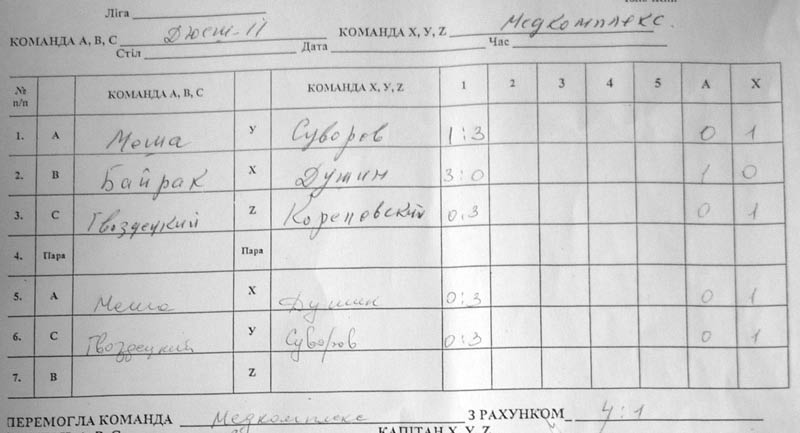 Ліга
КОМАНДА А, В, С Дюсш-11 КОМАНДА X, У, Z Медкомплекс.
Стіл Дата Час
№ п/п КОМАНДА А, В, С КОМАНДА X, У, Z 1 2 3 4 5 А X
1. А Меша У Суворов 1:3 0 1
2. В Байрак X Душин 3:0 1 0
3. С Гвоздецкий Z Кореповский 0:3 0 1
4. Пара Пара
5. А Меша X Душин 0:3 0 1
6. С Гвоздецкий У Суворов 0:3 0 1
7. В Z
ПЕРЕМОГЛА КОМАНДА Медкомплекс З РАХУНКОМ 4:1
КАПІТАН X, У, Z